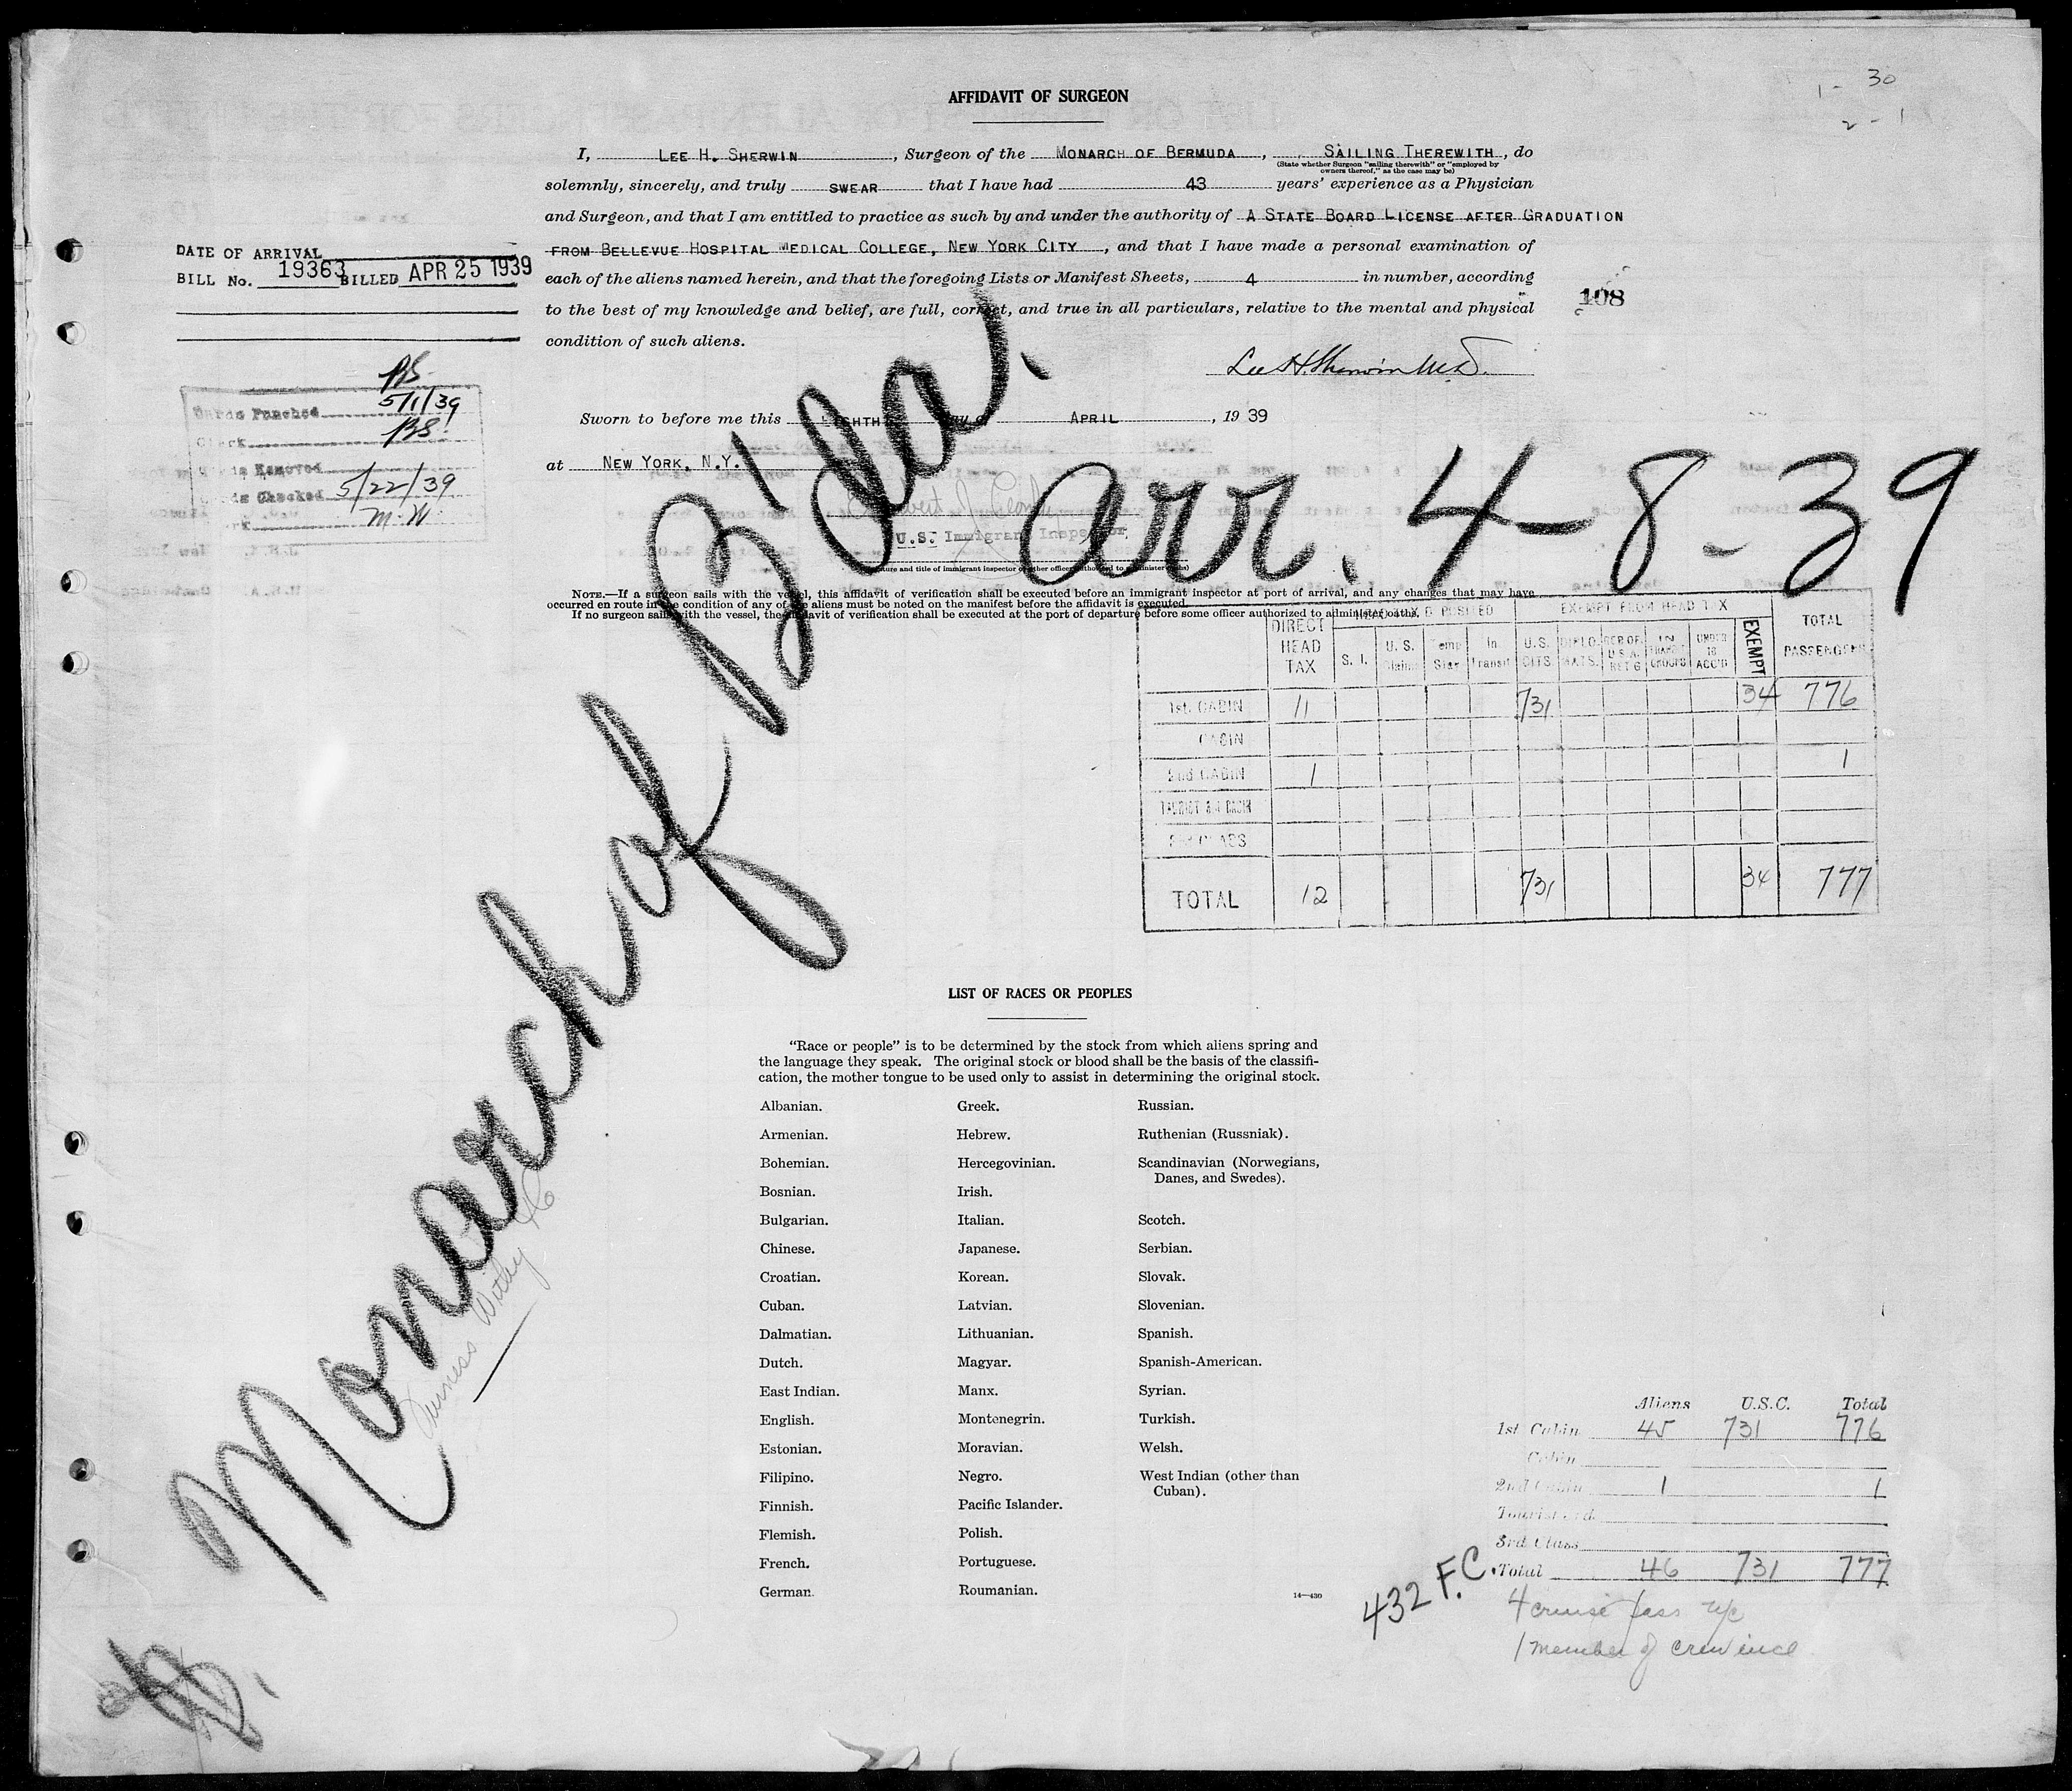 1 - 30
2 - 1
AFFIDAVIT OF SURGEON
I, LEE H. SHERWIN, Surgeon of the MONARCH OF BERMUDA, SAILING THEREWITH, do
(State whether Surgeon "sailing therewith" or "employed by
owners thereof," as the case may be)
solemnly, sincerely, and truly SWEAR that I have had 43 years' experience as a Physician
and Surgeon, and that I am entitled to practice as such by and under the authority of A STATE BOARD LICENSE AFTER GRADUATION
FROM BELLEVUE HOSPITAL MEDICAL COLLEGE, NEW YORK CITY, and that I have made a personal examination of
each of the aliens named herein, and that the foregoing Lists or Manifest Sheets, 4 in number, according
to the best of my knowledge and belief, are full, correct, and true in all particulars, relative to the mental and physical
condition of such aliens.
DATE OF ARRIVAL
BILL No. 19363 BILLED APR 25 1939
108
Lee H. Sherwin M.D.
BS
Cards Punched 5/1/39
Clerk BS
Cards Removed
Cards Checked 5/22/39
M.W.
Sworn to before me this EIGHTH day of APRIL, 19 39
at NEW YORK, N.Y.
U.S. Immigrant Inspector
(Signature and title of immigrant inspector or other officer authorized to administer oaths)
arr. 4-8-39
Monarch of B'da.
Furness Withy
NOTE.—If a surgeon sails with the vessel, this affidavit of verification shall be executed before an immigrant inspector at port of arrival, and any changes that may have
occurred en route in the condition of any of the aliens must be noted on the manifest before the affidavit is executed.
If no surgeon sails with the vessel, the affidavit of verification shall be executed at the port of departure before some officer authorized to administer oaths.
DIRECT HEAD TAX
HEAD TAX DEPOSITED
S. I.
U. S.
Temp
In Transit
EXEMPT FROM HEAD TAX
U.S. CITS
DIPLOMATS.
RES OF U.S.A. RET'G
IN TRANSIT GROUPS
UNDER 16 ACC'D
EXEMPT
TOTAL PASSENGERS
1st. CABIN 11 731 34 776
CABIN
2nd CABIN 1 1
TOURIST 3rd CABIN
3rd CLASS
TOTAL 12 731 34 777
LIST OF RACES OR PEOPLES
"Race or people" is to be determined by the stock from which aliens spring and
the language they speak. The original stock or blood shall be the basis of the classifi-
cation, the mother tongue to be used only to assist in determining the original stock.
Albanian. Greek. Russian.
Armenian. Hebrew. Ruthenian (Russniak).
Bohemian. Hercegovinian. Scandinavian (Norwegians,
Danes, and Swedes).
Bosnian. Irish.
Bulgarian. Italian. Scotch.
Chinese. Japanese. Serbian.
Croatian. Korean. Slovak.
Cuban. Latvian. Slovenian.
Dalmatian. Lithuanian. Spanish.
Dutch. Magyar. Spanish-American.
East Indian. Manx. Syrian.
English. Montenegrin. Turkish.
Estonian. Moravian. Welsh.
Filipino. Negro. West Indian (other than
Cuban).
Finnish. Pacific Islander.
Flemish. Polish.
French. Portuguese.
German. Roumanian.
14—430
Aliens U.S.C. Total
1st. Cabin 45 731 776
Cabin
2nd Cabin 1 1
Tourist 3rd.
3rd. Class
Total 46 731 777
432 F.C.
4 cruise pass
1 member of crew incl